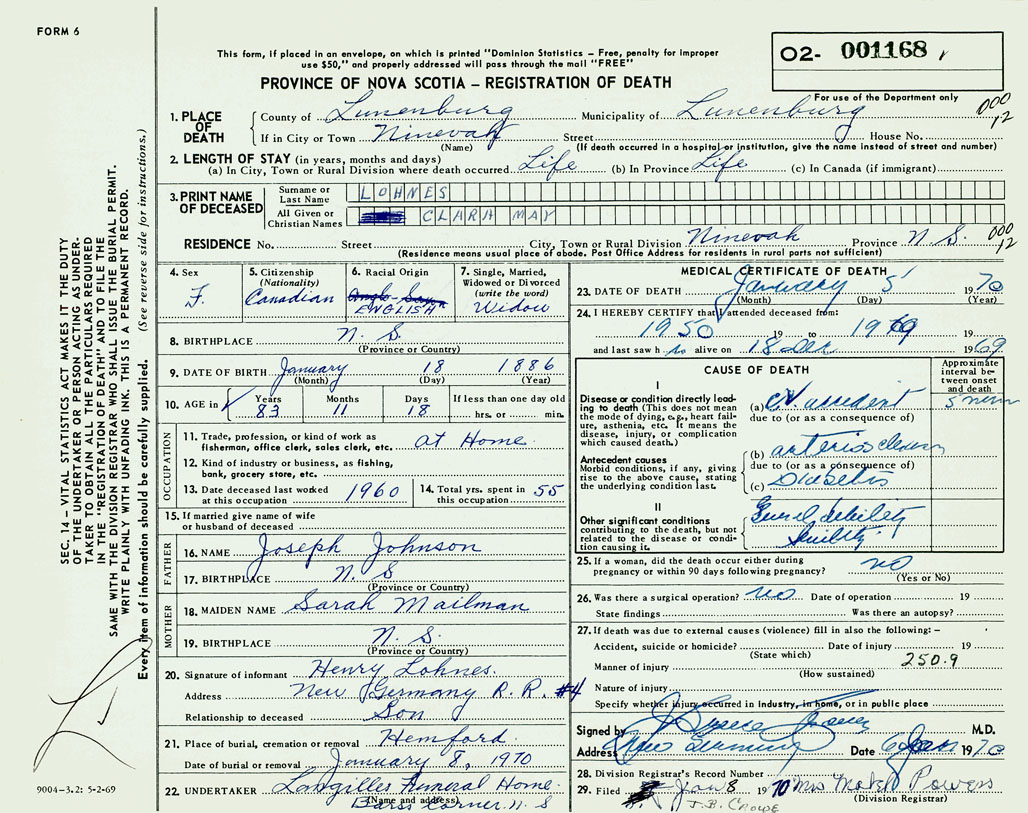 FORM 6
This form, if placed in an envelope, on which is printed "Dominion Statistics – Free, penalty for improper
use $50," and properly addressed will pass through the mail "FREE"
O2- 001168
PROVINCE OF NOVA SCOTIA – REGISTRATION OF DEATH
For use of the Department only
000
12
1. PLACE OF DEATH
County of Lunenburg Municipality of Lunenburg
If in City or Town Ninevah Street House No.
(Name) (If death occurred in a hospital or institution, give the name instead of street and number)
2. LENGTH OF STAY (in years, months and days)
(a) In City, Town or Rural Division where death occurred Life (b) In Province Life (c) In Canada (if immigrant)
3. PRINT NAME OF DECEASED
Surname or Last Name LOHNES
All Given or Christian Names CLARA MAY
RESIDENCE No. Street City, Town or Rural Division Ninevah Province N. S. 000
12
(Residence means usual place of abode. Post Office Address for residents in rural parts not sufficient)
4. Sex
F.
5. Citizenship
(Nationality)
Canadian
6. Racial Origin
Anglo-Saxon
ENGLISH
7. Single, Married,
Widowed or Divorced
(write the word)
Widow
8. BIRTHPLACE N. S.
(Province or Country)
9. DATE OF BIRTH January 18 1886
(Month) (Day) (Year)
10. AGE in Years Months Days If less than one day old
83 11 18 hrs. or min.
OCCUPATION
11. Trade, profession, or kind of work as
fisherman, office clerk, sales clerk, etc. at Home.
12. Kind of industry or business, as fishing,
bank, grocery store, etc.
13. Date deceased last worked
at this occupation 1960
14. Total yrs. spent in
this occupation 55
15. If married give name of wife
or husband of deceased
FATHER
16. NAME Joseph Johnson
17. BIRTHPLACE N. S
(Province or Country)
MOTHER
18. MAIDEN NAME Sarah Mailman
19. BIRTHPLACE N. S.
(Province or Country)
20. Signature of informant Henry Lohnes.
Address New Germany R. R. #4
Relationship to deceased Son
21. Place of burial, cremation or removal Hemford.
Date of burial or removal January 8, 1970
22. UNDERTAKER Langilles Funeral Home.
(Name and address)
Barss Corner. N. S
MEDICAL CERTIFICATE OF DEATH
23. DATE OF DEATH January 5 1970
(Month) (Day) (Year)
24. I HEREBY CERTIFY that I attended deceased from:
1950 19 to 19 19
and last saw h alive on 18 Dec 1969
CAUSE OF DEATH
Approximate
interval be-
tween onset
and death
I
Disease or condition directly lead-
ing to death (This does not mean
the mode of dying, e.g., heart fail-
ure, asthenia, etc. It means the
disease, injury, or complication
which caused death.)
(a) CV accident
due to (or as a consequence of)
Antecedent causes
Morbid conditions, if any, giving
rise to the above cause, stating
the underlying condition last.
(b)
due to (or as a consequence of)
(c) Diabetis
II
Other significant conditions
contributing to the death, but not
related to the disease or condi-
tion causing it.
debility
Senility
25. If a woman, did the death occur either during
pregnancy or within 90 days following pregnancy? no
(Yes or No)
26. Was there a surgical operation? no Date of operation 19
State findings Was there an autopsy?
27. If death was due to external causes (violence) fill in also the following: –
Accident, suicide or homicide? Date of injury 19
(State which)
250.9
Manner of injury
(How sustained)
Nature of injury
Specify whether injury occurred in Industry, in home, or in public place
Signed by M.D.
Address New Germany Date 6 Jan 1970
28. Division Registrar's Record Number
29. Filed Jan 8 1970 Mrs Mabel Powers
(Division Registrar)
J.B. CROWE
SEC. 14 – VITAL STATISTICS ACT MAKES IT THE DUTY
OF THE UNDERTAKER OR PERSON ACTING AS UNDER-
TAKER TO OBTAIN ALL THE PARTICULARS REQUIRED
IN THE "REGISTRATION OF DEATH" AND TO FILE THE
SAME WITH THE DIVISION REGISTRAR WHO SHALL ISSUE THE BURIAL PERMIT.
WRITE PLAINLY WITH UNFADING INK. THIS IS A PERMANENT RECORD.
Every item of information should be carefully supplied. (See reverse side for instructions.)
9004-3.2: 5-2-69